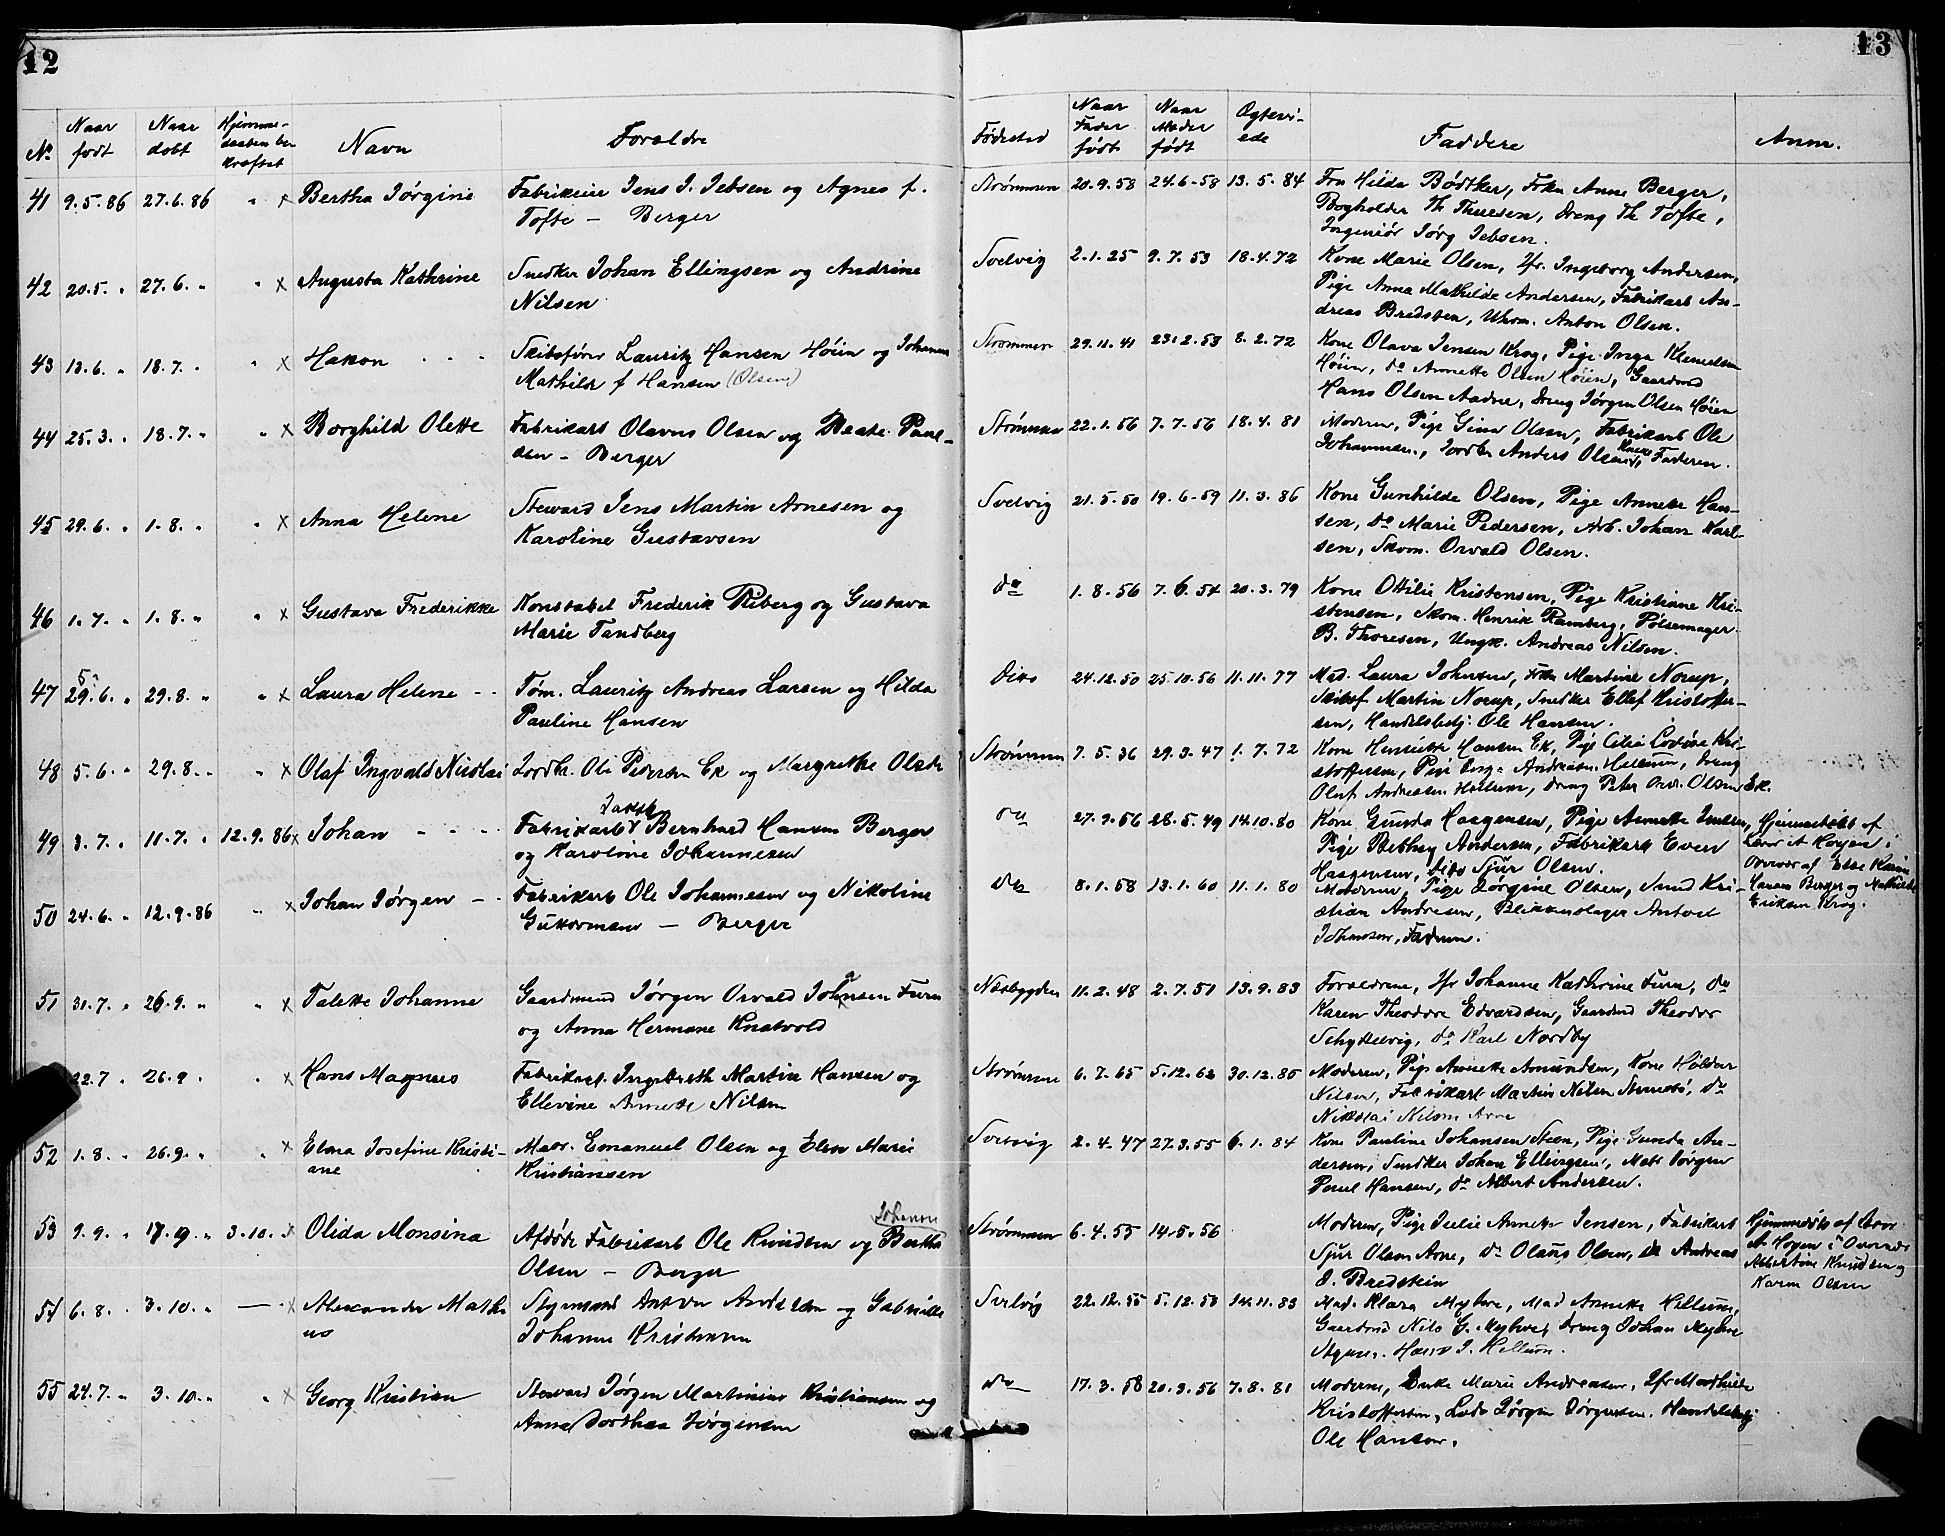 12
No Naar født Naar døbt Hjemmedaaben bekræftet Navn Forældre
41 9.5.86 27.6.86 " x Bertha Jørgine Fabrikeier Jens J. Jebsen og Agnes f.
Tofte – Berger
42 20.5. " 27.6. " " x Augusta Kathrine Snedker Johan Ellingsen og Andrine
Nilsen
43 13.6. " 18.7. " " x Hakon Skibsfører Lauritz Hansen Høien og Johanne
Mathilde f Hansen (Olsen)
44 25.3. " 18.7. " " x Borghild Olette Fabrikarb Olavus Olsen og Beate Paul-
sen – Berger
45 29.6. " 1.8. " " x Anna Helene Steward Jens Martin Arnesen og
Karoline Gustavsen
46 1.7. " 1.8. " " x Gustava Frederikke Konstabel Frederik Riberg og Gustava
Marie Tandberg
5
47 29.6. " 29.8. " " x Laura Helene Tøm. Lauritz Andreas Larsen og Hilda
Pauline Hansen
48 5.6. " 29.8. " " x Olaf Ingvald Nicolai Jordbr. Ole Pedersen Ek og Margrethe Olsdr
49 3.7. " 11.7. " 12.9.86 x Johan Fabrikarb Bernhard Hansen Berger
og Karoline Johannesen
50 24.6. " 12.9.86 " x Johan Jørgen Fabrikarb Ole Johannesen og Nikoline
Guttormsen – Berger
51 31.7. " 26.9. " " x Talette Johanne Gaardmand Jørgen Osvald Johnsen Furu
og Anna Hermane Knatvold
22.7 " 26.9 " " x Hans Magnus Fabrikarb. Ingebreth Martin Hansen og
Ellevine Annette Nilsen
52 1.8. " 26.9. " " x Elma Josefine Kristi-
ane Matr. Emanuel Olsen og Elen Marie
Kristiansen
Johanne
53 9.9. " 17.9. " 3.10. " x Olida Monsina Afdøde Fabrikarb Ole Knudsen og Bertha
Olsen – Berger
54 6.8. " 3.10. " — x Alexander Mathi
us Styrmand Anton Andersen og Gabrielle
Johanne Kristensen
55 24.7. " 3.10. " " x Georg Kristian Steward Jørgen Martinius Kristiansen og
Anne Dorthea Jørgensen
13
Fødested Naar Fader født Naar Moder født Ægtevi-
ede Faddere Anm.
Strømmen 20.9.58 24.6-58 13.5.84 Fru Hilda Bødtker, Frkn Anne Berger,
Bogholder Th Thuesen, Dreng Th Tofte,
Ingeniør Jørg Jebsen.
Svelvig 2.1.25 9.7.53 18.4.72 Kone Marie Olsen, Jfr. Ingeborg Andersen,
Pige Anna Mathilde Andersen, Fabrikarb An-
dreas Bredsten, Uhrm. Anton Olsen.
Strømmen 29.11.41 23.2.53 8.2.72 Kone Olava Jensen Krog, Pige Inga Klemedsen
Høien, do Annette Olsen Høien, Gaardmd
Hans Olsen Aadne, Dreng Jørgen Olsen Høien
Strømmen 22.1.56 7.7.56 18.4.81 Moderen, Pige Gina Olsen, Fabrikarb Ole
Johannesen, Jordbr Anders Olsen, Faderen.
Svelvig 21.5.50 19.6-59 11.3.86 Kone Gunhilde Olsen, Pige Annette Han-
sen, do Marie Pedersen, Arb. Johan Karl-
sen, Skom. Osvald Olsen.
do 1.8.56 7.6.54 20.3.79 Kone Ottilie Kristensen, Pige Kristiane Kri-
stensen, Skom. Henrik Ramberg, Pølsemager
B. Thoresen, Ungk. Andreas Nilsen.
Dito 24.12.50 25.10.56 11.11.77 Mad. Laura Johnsen, Frk Martine Norup,
Skibsf Martin Norup, Snedker Ellef Kristoffer-
sen, Handelsbetj: Ole Hansen.
Strømmen 7.5.36 29.3.47 1.7.72 Kone Henriette Hansen Ek, Pige Lovise Kri-
stoffersen, Pige Andreasen Hellum, Dreng
Oluf Andreasen Hellum, Dreng Peter Olsen Ek.
do 27.9.56 28.5.49 14.10.80 Kone Gunda Haagensen, Pige Annette Jensen,
Pige Bethzy Andersen, Fabrikarb Even
Haagensen, dito Sjur Olsen.
Hjemmedøbt af
Lars A Høyen i
Overvær af Else Karine
Hansen Berger og Mathilde
Eriksen Krog.
do 8.1.58 13.1.60 11.1.80 Moderen, Pige Jørgine Olsen, Smed Kri-
stian Andresen, Blikkenslager Anton
Johansen, Faderen.
Næsbygden 11.2.48 2.7.51 13.9.83 Forældrene, Jfr Johanne Kathrine Furu, do
Karen Theodore Edvardsen, Gaardmd Theodor
Schyttelvig, do Karl Nordby
Strømmen 6.7.65 5.12.62 30.12.85 Moderen, Pige Annette Amundsen, Kone
Nilsen, Fabrikarb Martin Nilsen, do
Nikolai Nilsen Arne
Svelvig 2.4.47 27.3.55 6.1.84 Kone Pauline Johansen Steen, Pige Gunda An-
dersen, Snedker Johan Ellingsen, Matr Jørgen
Poul Hansen, do Albert Andersen.
Strømmen 6.4.55 14.5.56 Moderen, Pige Julie Annette Jensen, Fabrikarb
Sjur Olsen Arne, do Olaus Olsen, do Andreas
O. Bredstein
Hjemmedøbt af Lars
A. Høyen i Overvær
Albertine Knudsen og
Karen Olsen
Svelvig 22.12.55 5.12.50 14.11.83 Mad. Klara Myhre, Mad Annette Hellum,
Gaardmd Nils G. Myhre, Dreng Johan Myhre
Styrm. Hans J. Hellum.
do 17.3.58 20.3.56 7.8.81 Moderen, Enke Marie Andreasen, Jfr Mathilde
Kristoffersen, Lods Jørgen Jørgensen, Handelsbetj
Ole Hansen.